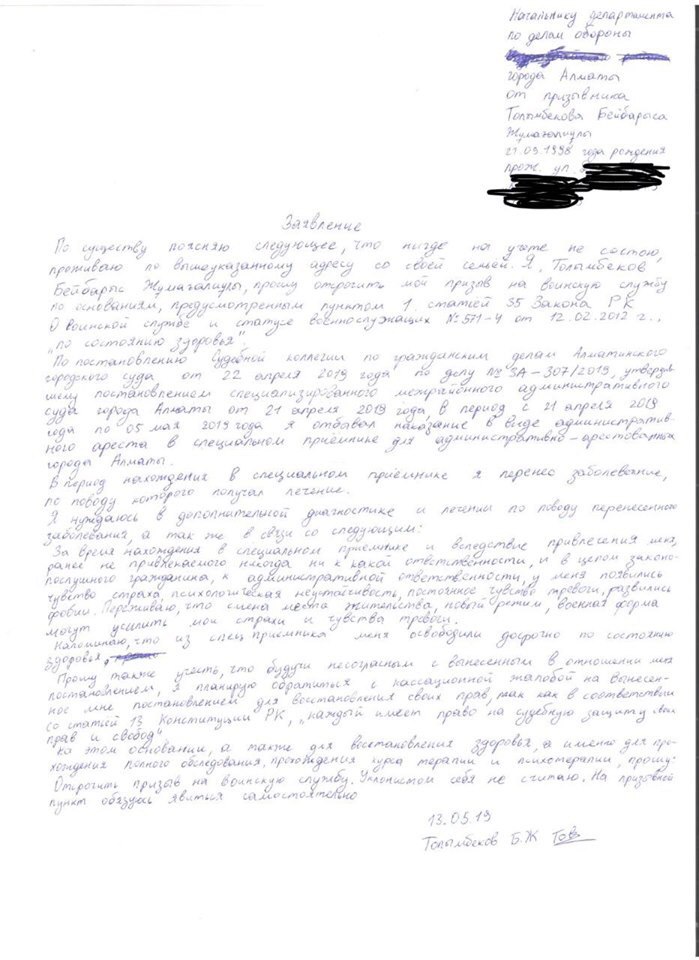 Начальнику департамента
по делам обороны
города Алматы
от призывника
Толымбекова Бейбарыса
Жумагалиулы
21.09.1998 года рождения
прож. ул.
Заявление
По существу поясняю следующее, что нигде на учете не состою,
проживаю по вышеуказанному адресу со своей семьей. Я, Толымбеков
Бейбарыс Жумагалиулы, прошу отсрочить мой призыв на воинскую службу
по основаниям, предусмотренным пунктом 1. статьей 35 Закона РК
О воинской службе и статусе военнослужащих № 571-4 от 12.02.2012 г.,
"по состоянию здоровья".
По постановлению Судебной коллегии по гражданским делам Алматинского
городского суда от 22 апреля 2019 года по делу № 3А-307/2019, утвердив-
шему постановлением специализированного межрайонного административного
суда города Алматы от 21 апреля 2019 года, в период с 21 апреля 2019
года по 05 мая 2019 года я отбывал наказание в виде административ-
ного ареста в специальном приемнике для административно-арестованных
города Алматы.
В период нахождения в специальном приемнике я перенес заболевание,
по поводу которого получал лечение.
Я нуждаюсь в дополнительной диагностике и лечении по поводу перенесенного
заболевания, а так же в связи со следующим:
За время нахождения в специальном приемнике и вследствие привлечения меня,
ранее не привлекаемого никогда ни к какой ответственности, и в целом законо-
послушного гражданина, к административной ответственности, у меня появились
чувство страха, психологическая неустойчивость, постоянное чувство тревоги, развились
фобии. Переживаю, что смена места жительства, новый режим, военная форма
могут усилить мои страхи и чувства тревоги.
Напоминаю, что из спец приемника меня освободили досрочно по состоянию
здоровья.
Прошу также учесть, что будучи несогласным с вынесенным в отношении меня
постановлением, я планирую обратиться с кассационной жалобой на вынесен-
ное мне постановлением для восстановления своих прав, так как в соответствии
со статьей 13 Конституции РК, "каждый имеет право на судебную защиту своих
прав и свобод"
На этом основании, а также для восстановления здоровья, а именно для про-
хождения полного обследования, прохождения курса терапии и психотерапии, прошу:
Отсрочить призыв на воинскую службу. Уклонистом себя не считаю. На призывной
пункт обязуюсь явиться самостоятельно
13.05.19
Толымбеков Б.Ж